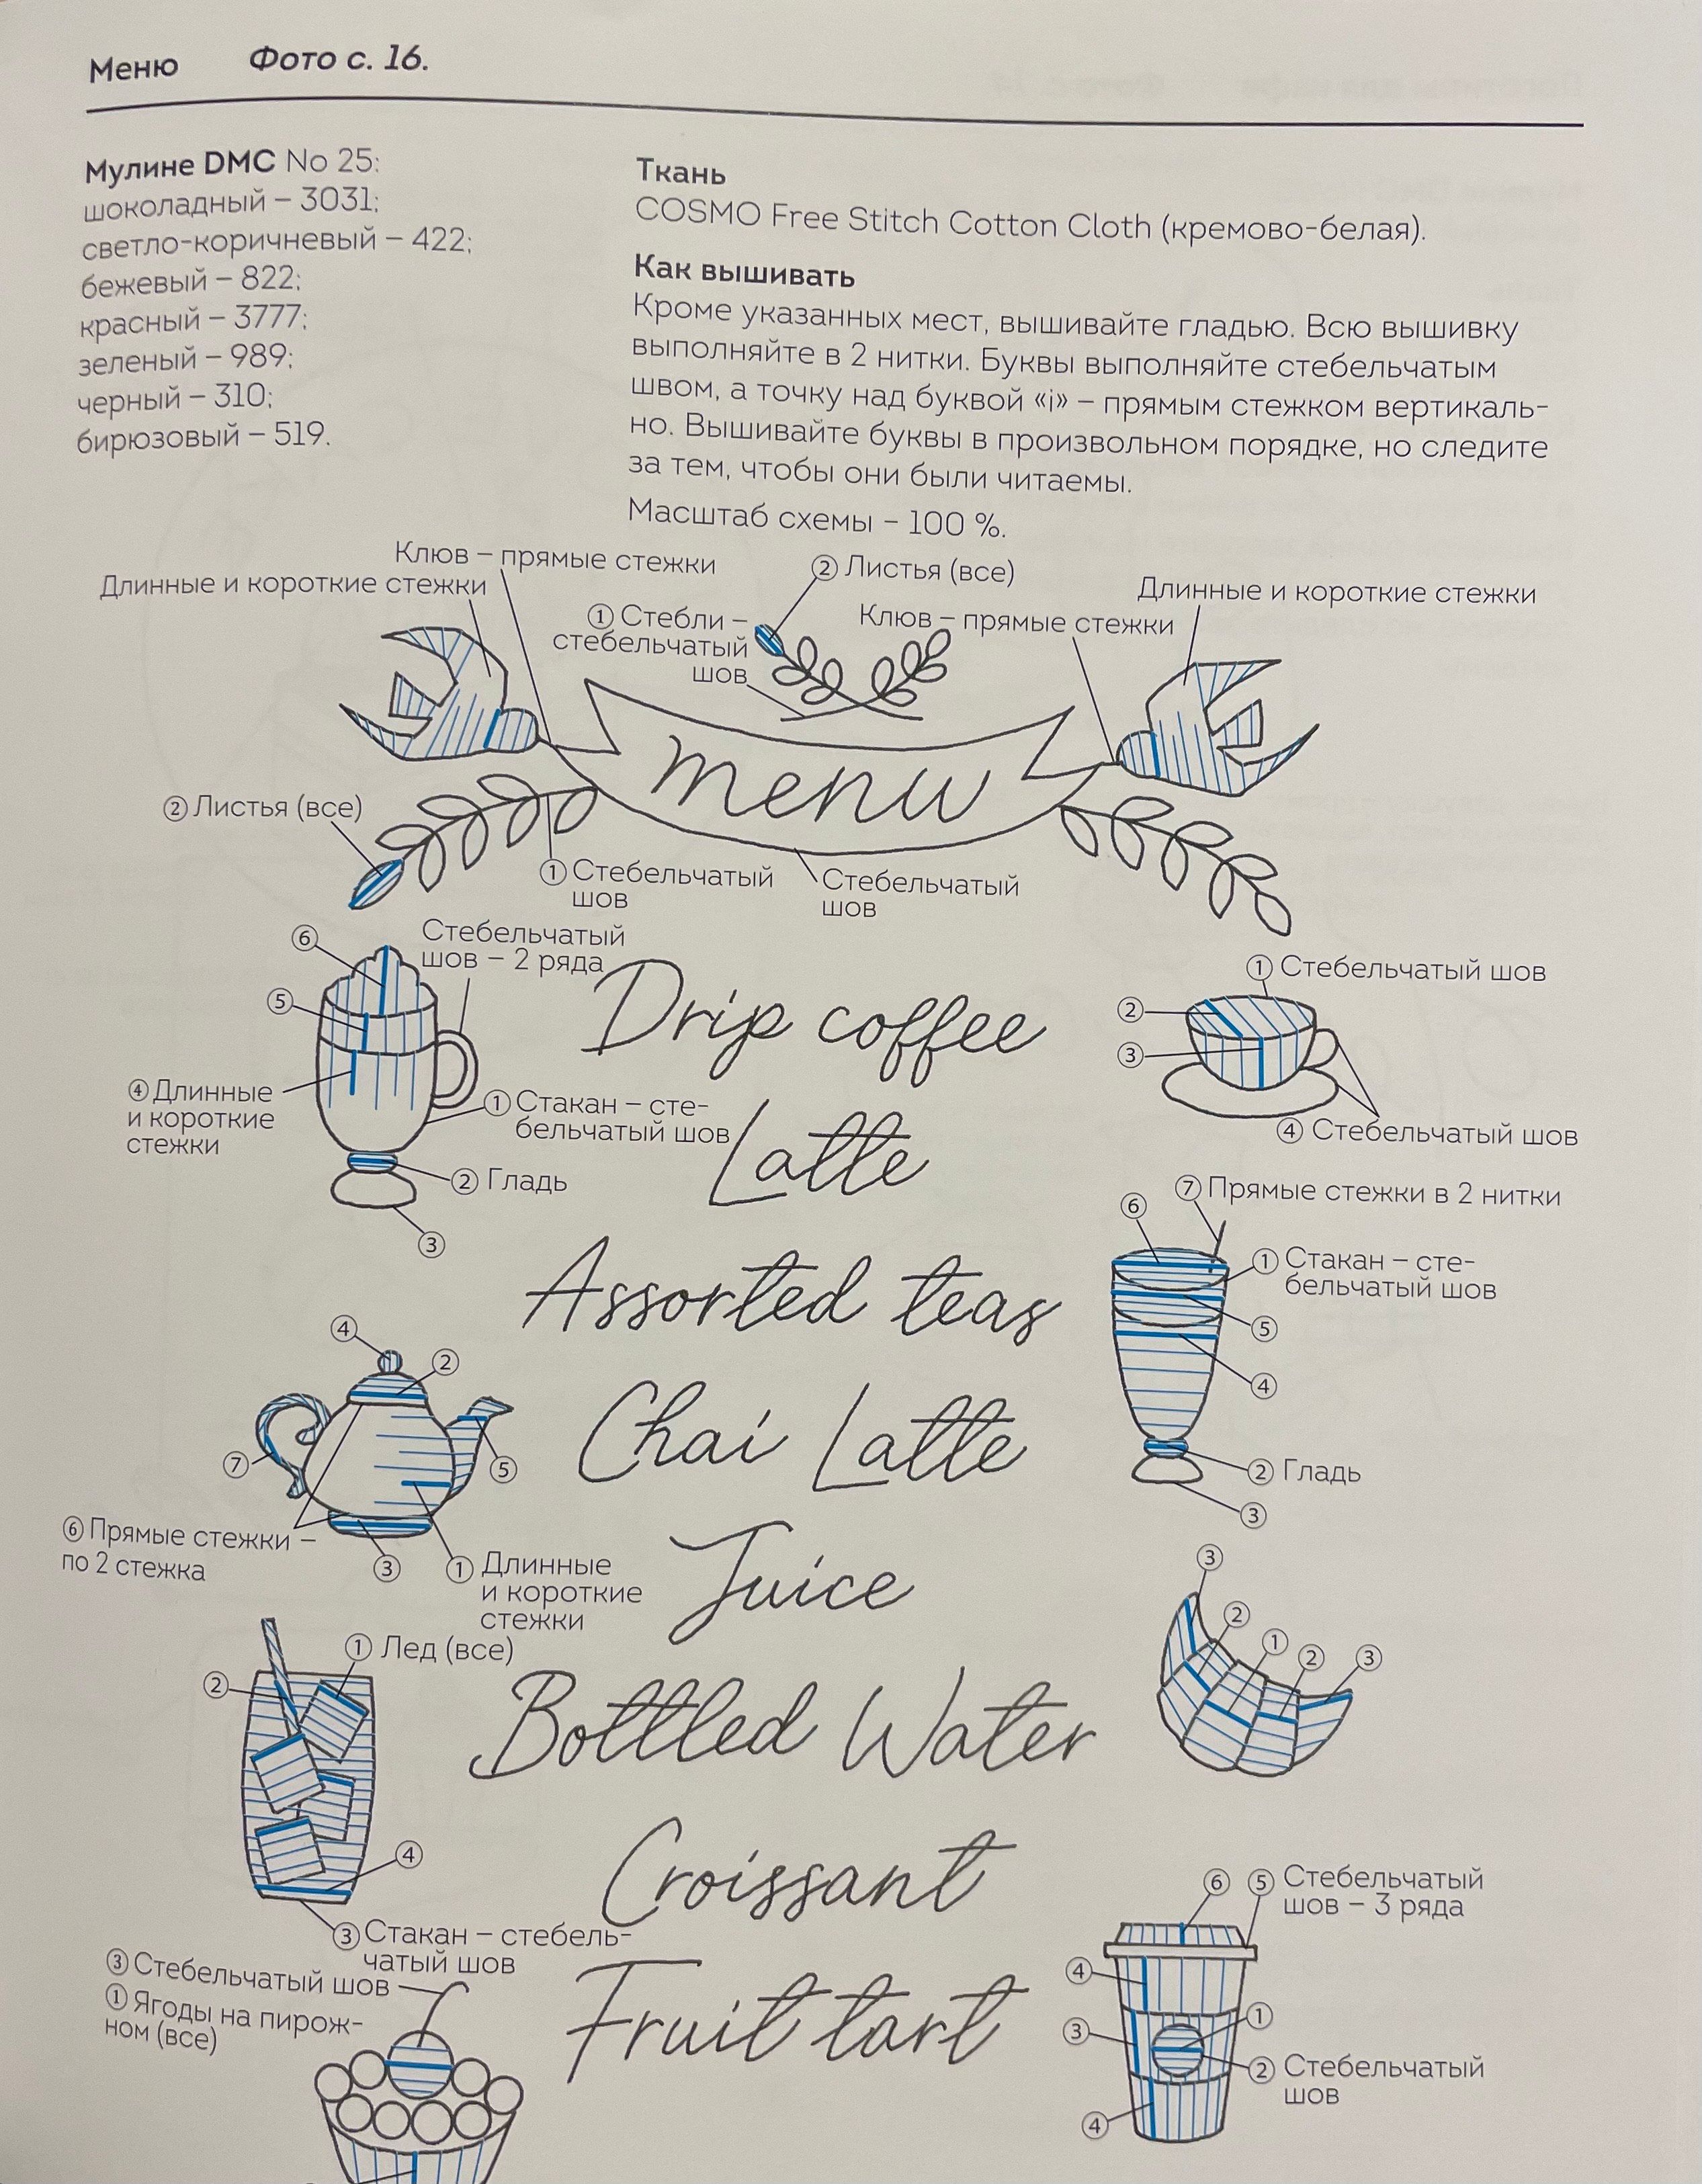 Меню Фото с. 16.
Мулине DMC No 25:
шоколадный – 3031;
светло-коричневый – 422;
бежевый – 822;
красный – 3777;
зеленый – 989;
черный – 310;
бирюзовый – 519.
Ткань
COSMO Free Stitch Cotton Cloth (кремово-белая).
Как вышивать
Кроме указанных мест, вышивайте гладью. Всю вышивку
выполняйте в 2 нитки. Буквы выполняйте стебельчатым
швом, а точку над буквой «i» – прямым стежком вертикаль-
но. Вышивайте буквы в произвольном порядке, но следите
за тем, чтобы они были читаемы.
Масштаб схемы – 100 %.
Клюв – прямые стежки
Длинные и короткие стежки
② Листья (все)
① Стебли –
стебельчатый
шов
Клюв – прямые стежки
Длинные и короткие стежки
menu
② Листья (все)
① Стебельчатый
шов
Стебельчатый
шов
⑥
Стебельчатый
шов – 2 ряда
⑤
④ Длинные
и короткие
стежки
① Стакан – сте-
бельчатый шов
② Гладь
③
Drip coffee
① Стебельчатый шов
②
③
④ Стебельчатый шов
Latte
⑦ Прямые стежки в 2 нитки
⑥
① Стакан – сте-
бельчатый шов
⑤
④
② Гладь
③
Assorted teas
④
②
⑦
⑤
⑥ Прямые стежки –
по 2 стежка
③
① Длинные
и короткие
стежки
Chai Latte
Juice
① Лед (все)
②
④
③ Стакан – стебель-
чатый шов
③
②
①
②
③
Bottled Water
Croissant
⑥
⑤ Стебельчатый
шов – 3 ряда
④
③
①
② Стебельчатый
шов
④
③ Стебельчатый шов
① Ягоды на пирож-
ном (все)
Fruit tart